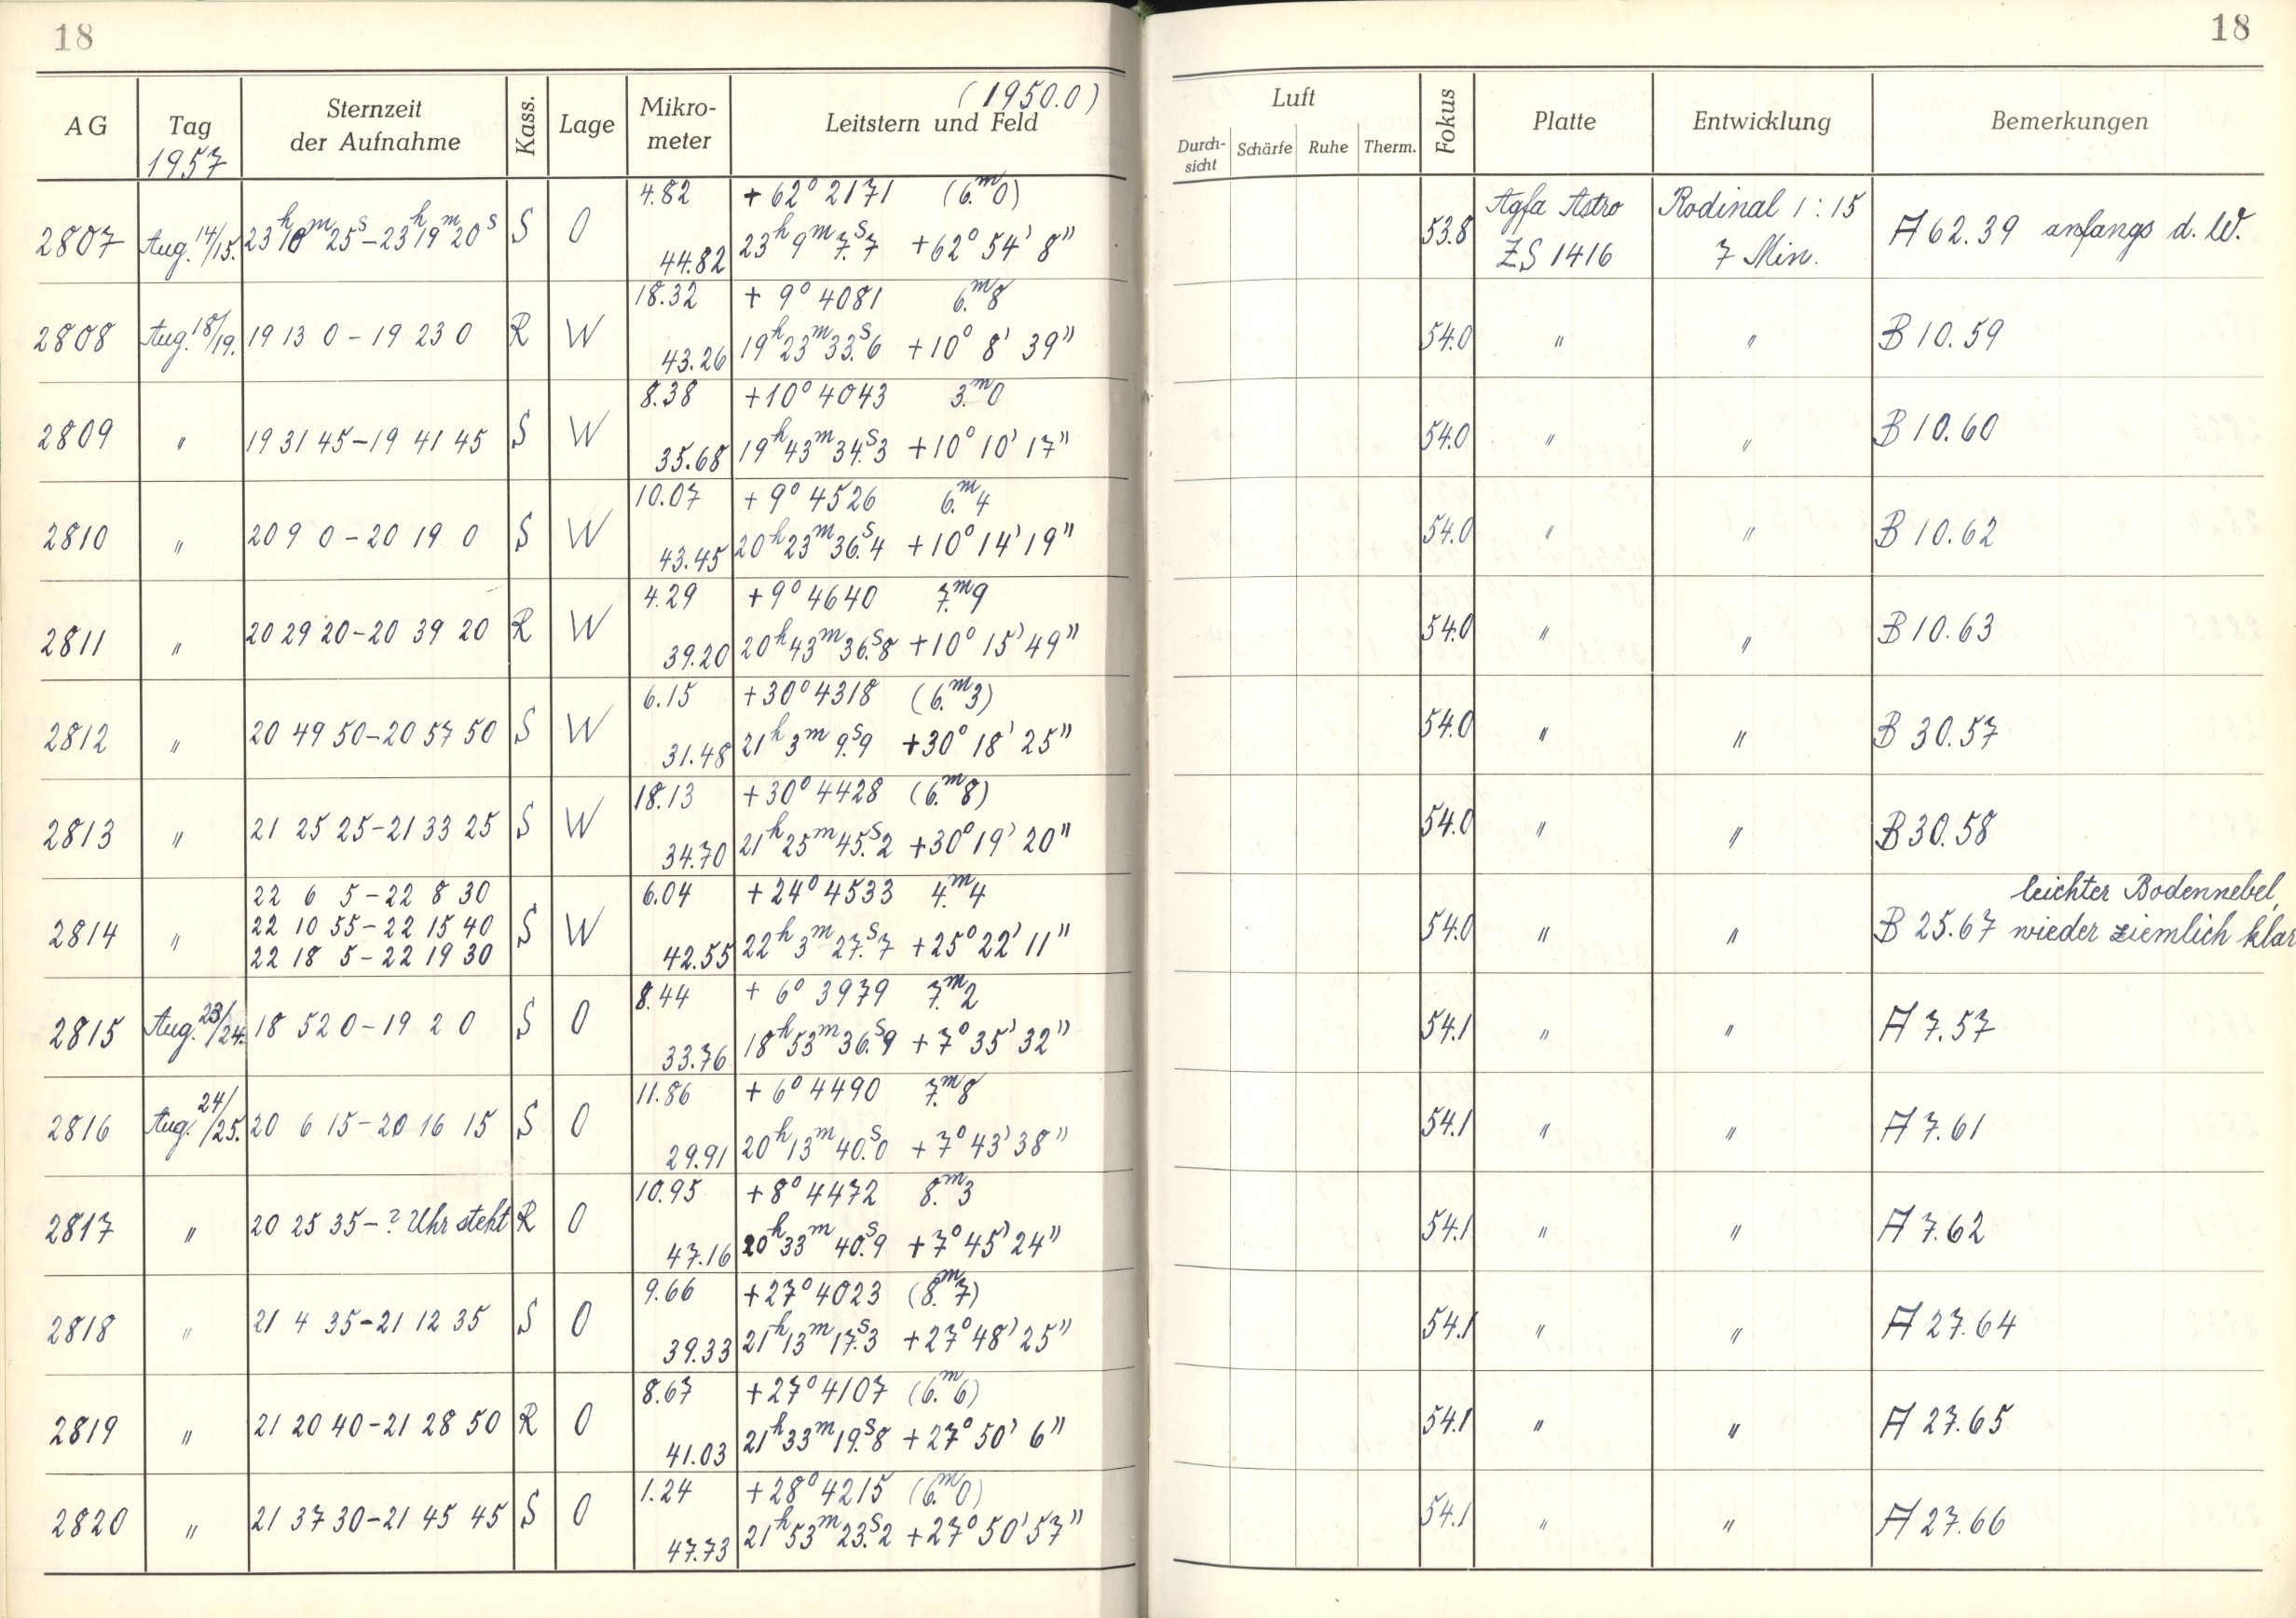 18
18
AG
Tag
1957
Sternzeit
der Aufnahme
Kass.
Lage
Mikro-
meter
(1950.0)
Leitstern und Feld
Luft
Durch-
sicht
Schärfe
Ruhe
Therm.
Fokus
Platte
Entwicklung
Bemerkungen
2807 Aug. 14/15. 23h 10m 25s – 23h 19m 20s S O 4.82 + 62° 2171 (6.m0)
44.82 23h 9m 7.s7 +62° 54' 8"
53.8 Agfa Astro Rodinal 1:15
ZS 1416 7 Min.
A 62.39 anfangs d. W.
2808 Aug. 18/19. 19 13 0 – 19 23 0 R W 18.32 + 9° 4081 6.m8
43.26 19h 23m 33.s6 +10° 8' 39"
54.0 " " B 10.59
2809 " 19 31 45 – 19 41 45 S W 8.38 +10° 4043 3.m0
35.68 19h 43m 34.s3 +10° 10' 17"
54.0 " " B 10.60
2810 " 20 9 0 – 20 19 0 S W 10.07 + 9° 4526 6.m4
43.45 20h 23m 36.s4 +10° 14' 19"
54.0 " " B 10.62
2811 " 20 29 20 – 20 39 20 R W 4.29 +9° 4640 7.m9
39.20 20h 43m 36.s8 +10° 15' 49"
54.0 " " B 10.63
2812 " 20 49 50 – 20 57 50 S W 6.15 +30° 4318 (6.m3)
31.48 21h 3m 9.s9 +30° 18' 25"
54.0 " " B 30.57
2813 " 21 25 25 – 21 33 25 S W 18.13 +30° 4428 (6.m8)
34.70 21h 25m 45.s2 +30° 19' 20"
54.0 " " B 30.58
2814 " 22 6 5 – 22 8 30 S W 6.04 +24° 4533 4.m4
22 10 55 – 22 15 40
22 18 5 – 22 19 30
42.55 22h 3m 27.s7 +25° 22' 11"
54.0 " " leichter Bodennebel,
B 25.67 wieder ziemlich klar
2815 Aug. 23/24. 18 52 0 – 19 2 0 S O 8.44 + 6° 3979 7.m2
33.76 18h 53m 36.s9 +7° 35' 32"
54.1 " " A 7.57
2816 Aug. 24/25. 20 6 15 – 20 16 15 S O 11.86 + 6° 4490 7.m8
29.91 20h 13m 40.s0 +7° 43' 38"
54.1 " " A 7.61
2817 " 20 25 35 – ? Uhr steht R O 10.95 +8° 4472 8.m3
47.16 20h 33m 40.s9 +7° 45' 24"
54.1 " " A 7.62
2818 " 21 4 35 – 21 12 35 S O 9.66 +27° 4023 (8.m7)
39.33 21h 13m 17.s3 +27° 48' 25"
54.1 " " A 27.64
2819 " 21 20 40 – 21 28 50 R O 8.67 +27° 4107 (6.m6)
41.03 21h 33m 19.s8 +27° 50' 6"
54.1 " " A 27.65
2820 " 21 37 30 – 21 45 45 S O 1.24 +28° 4215 (6.m0)
47.73 21h 53m 23.s2 +27° 50' 57"
54.1 " " A 27.66